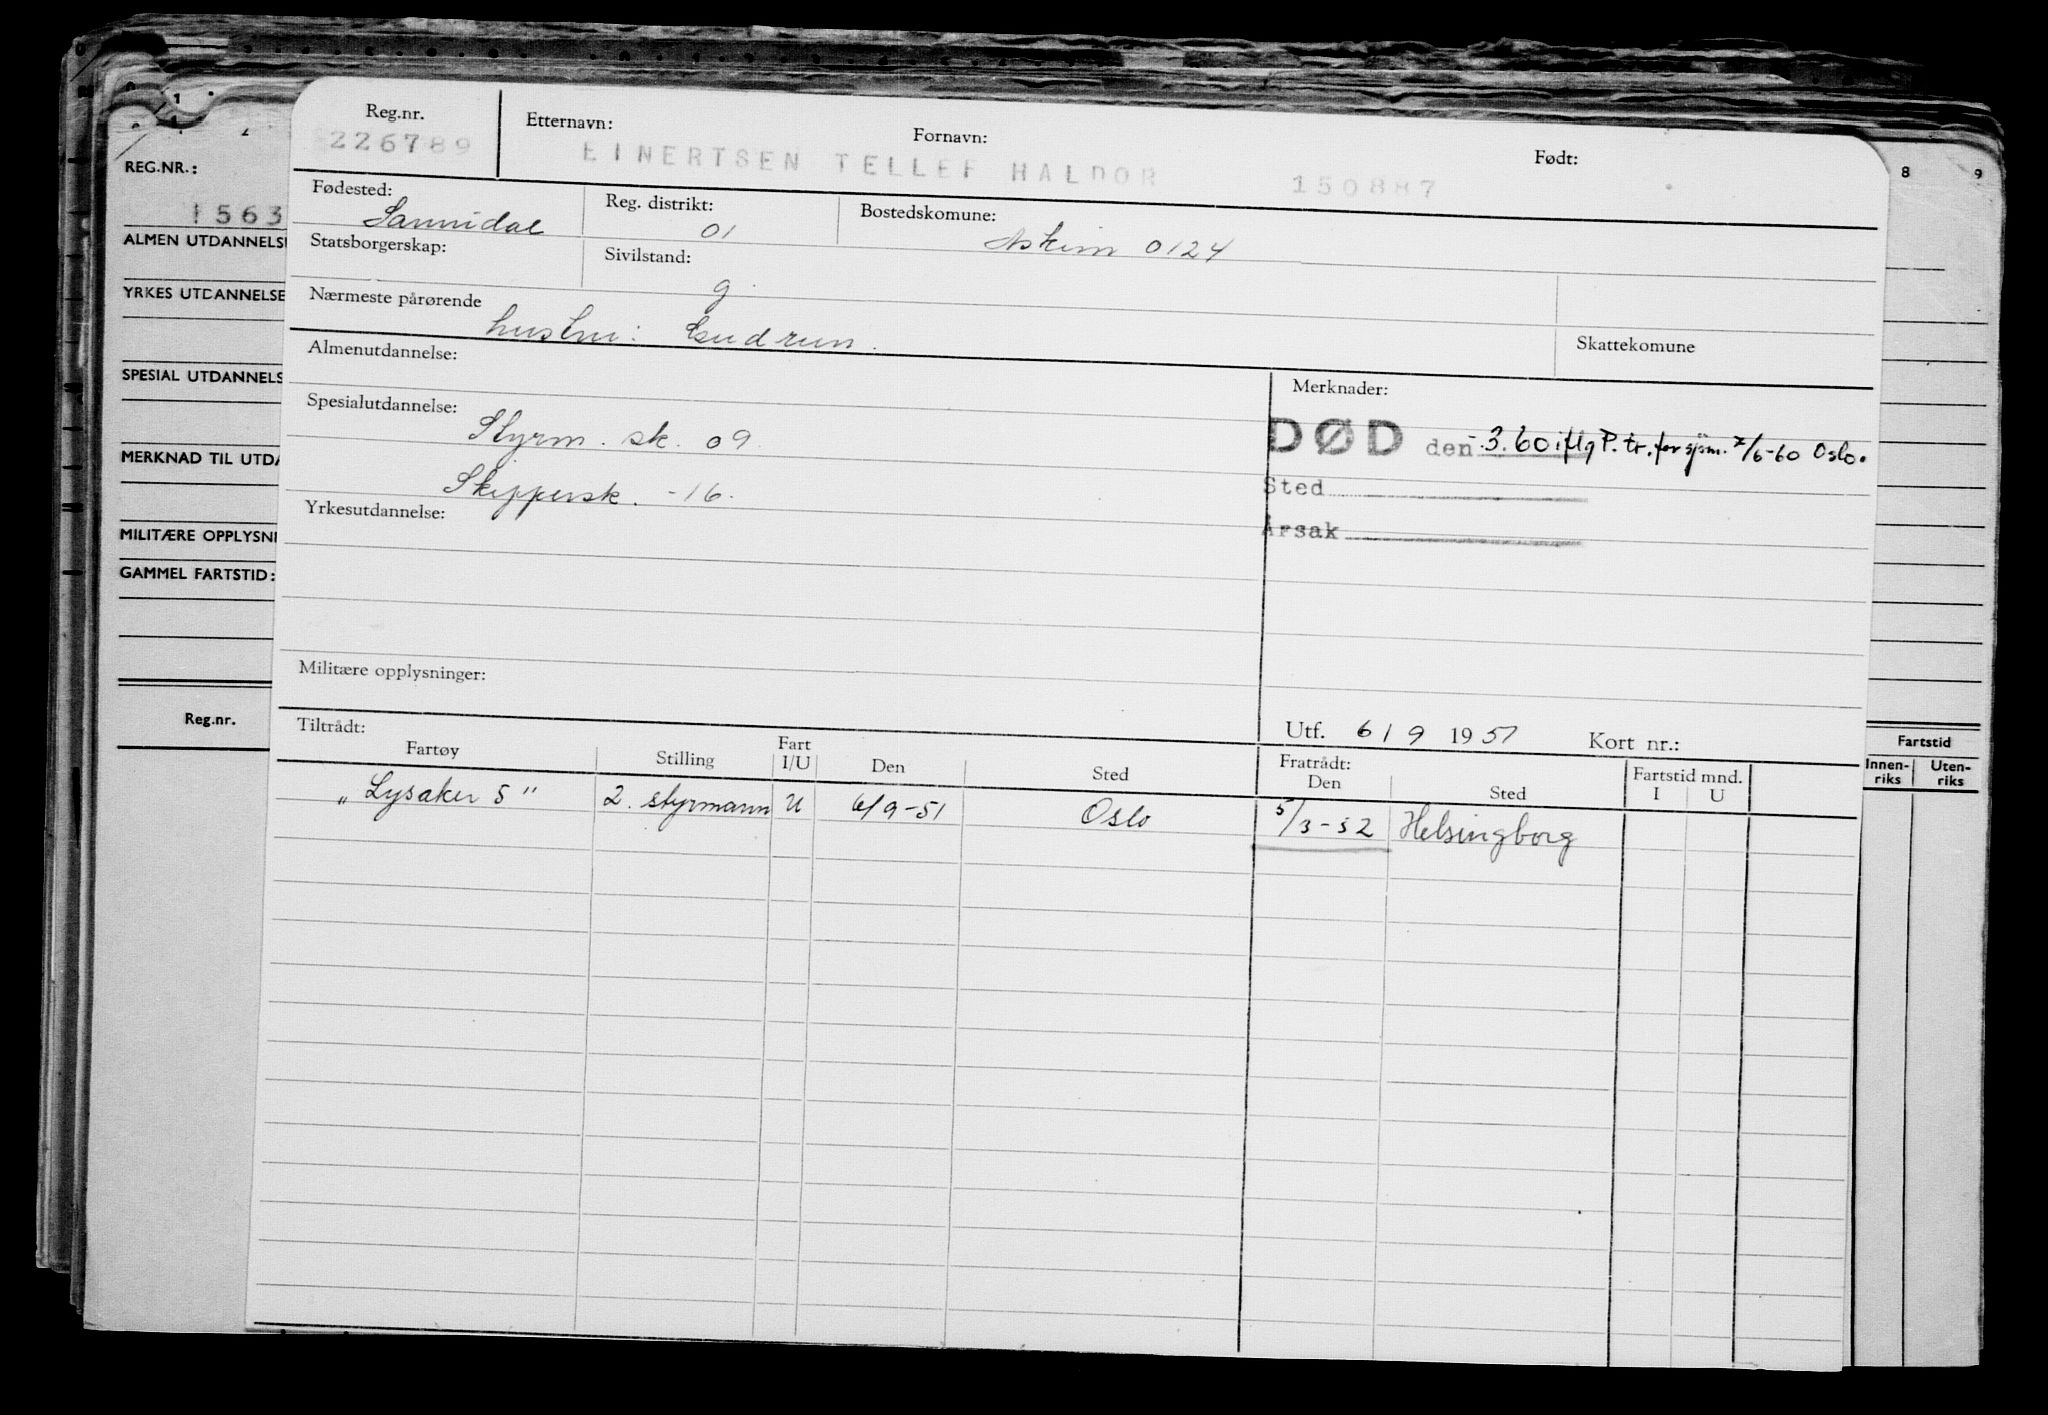 Reg.nr. Etternavn: Fornavn: Født:
226789 EINERTSEN TELLEF HALDOR 150887
Fødested: Reg. distrikt: Bostedskomune:
Sannidal 01 Askim 0124
Statsborgerskap: Sivilstand:
g
Nærmeste pårørende Skattekomune
hustru: Gudrun.
Almenutdannelse: Merknader:
Spesialutdannelse: DØD den -.3.60 iflg P. tr. for sjøm. 7/6-60 Oslo.
Styrm. sk. 09
Sted
Skippersk. -16.
Årsak
Yrkesutdannelse:
Militære opplysninger:
Utf. 6/9 1951 Kort nr.:
Tiltrådt: Fratrådt: Fartstid mnd.
Fartøy Stilling Fart I/U Den Sted Den Sted I U
"Lysaker 5" 2. styrmann U 6/9-51 Oslo 5/3-52 Helsingborg
REG.NR.:
1563
ALMEN UTDANNELS
YRKES UTDANNELSE
SPESIAL UTDANNELS
MERKNAD TIL UTDA
MILITÆRE OPPLYSNI
GAMMEL FARTSTID:
Reg.nr.
8 9
Fartstid
Innen-riks Uten-riks